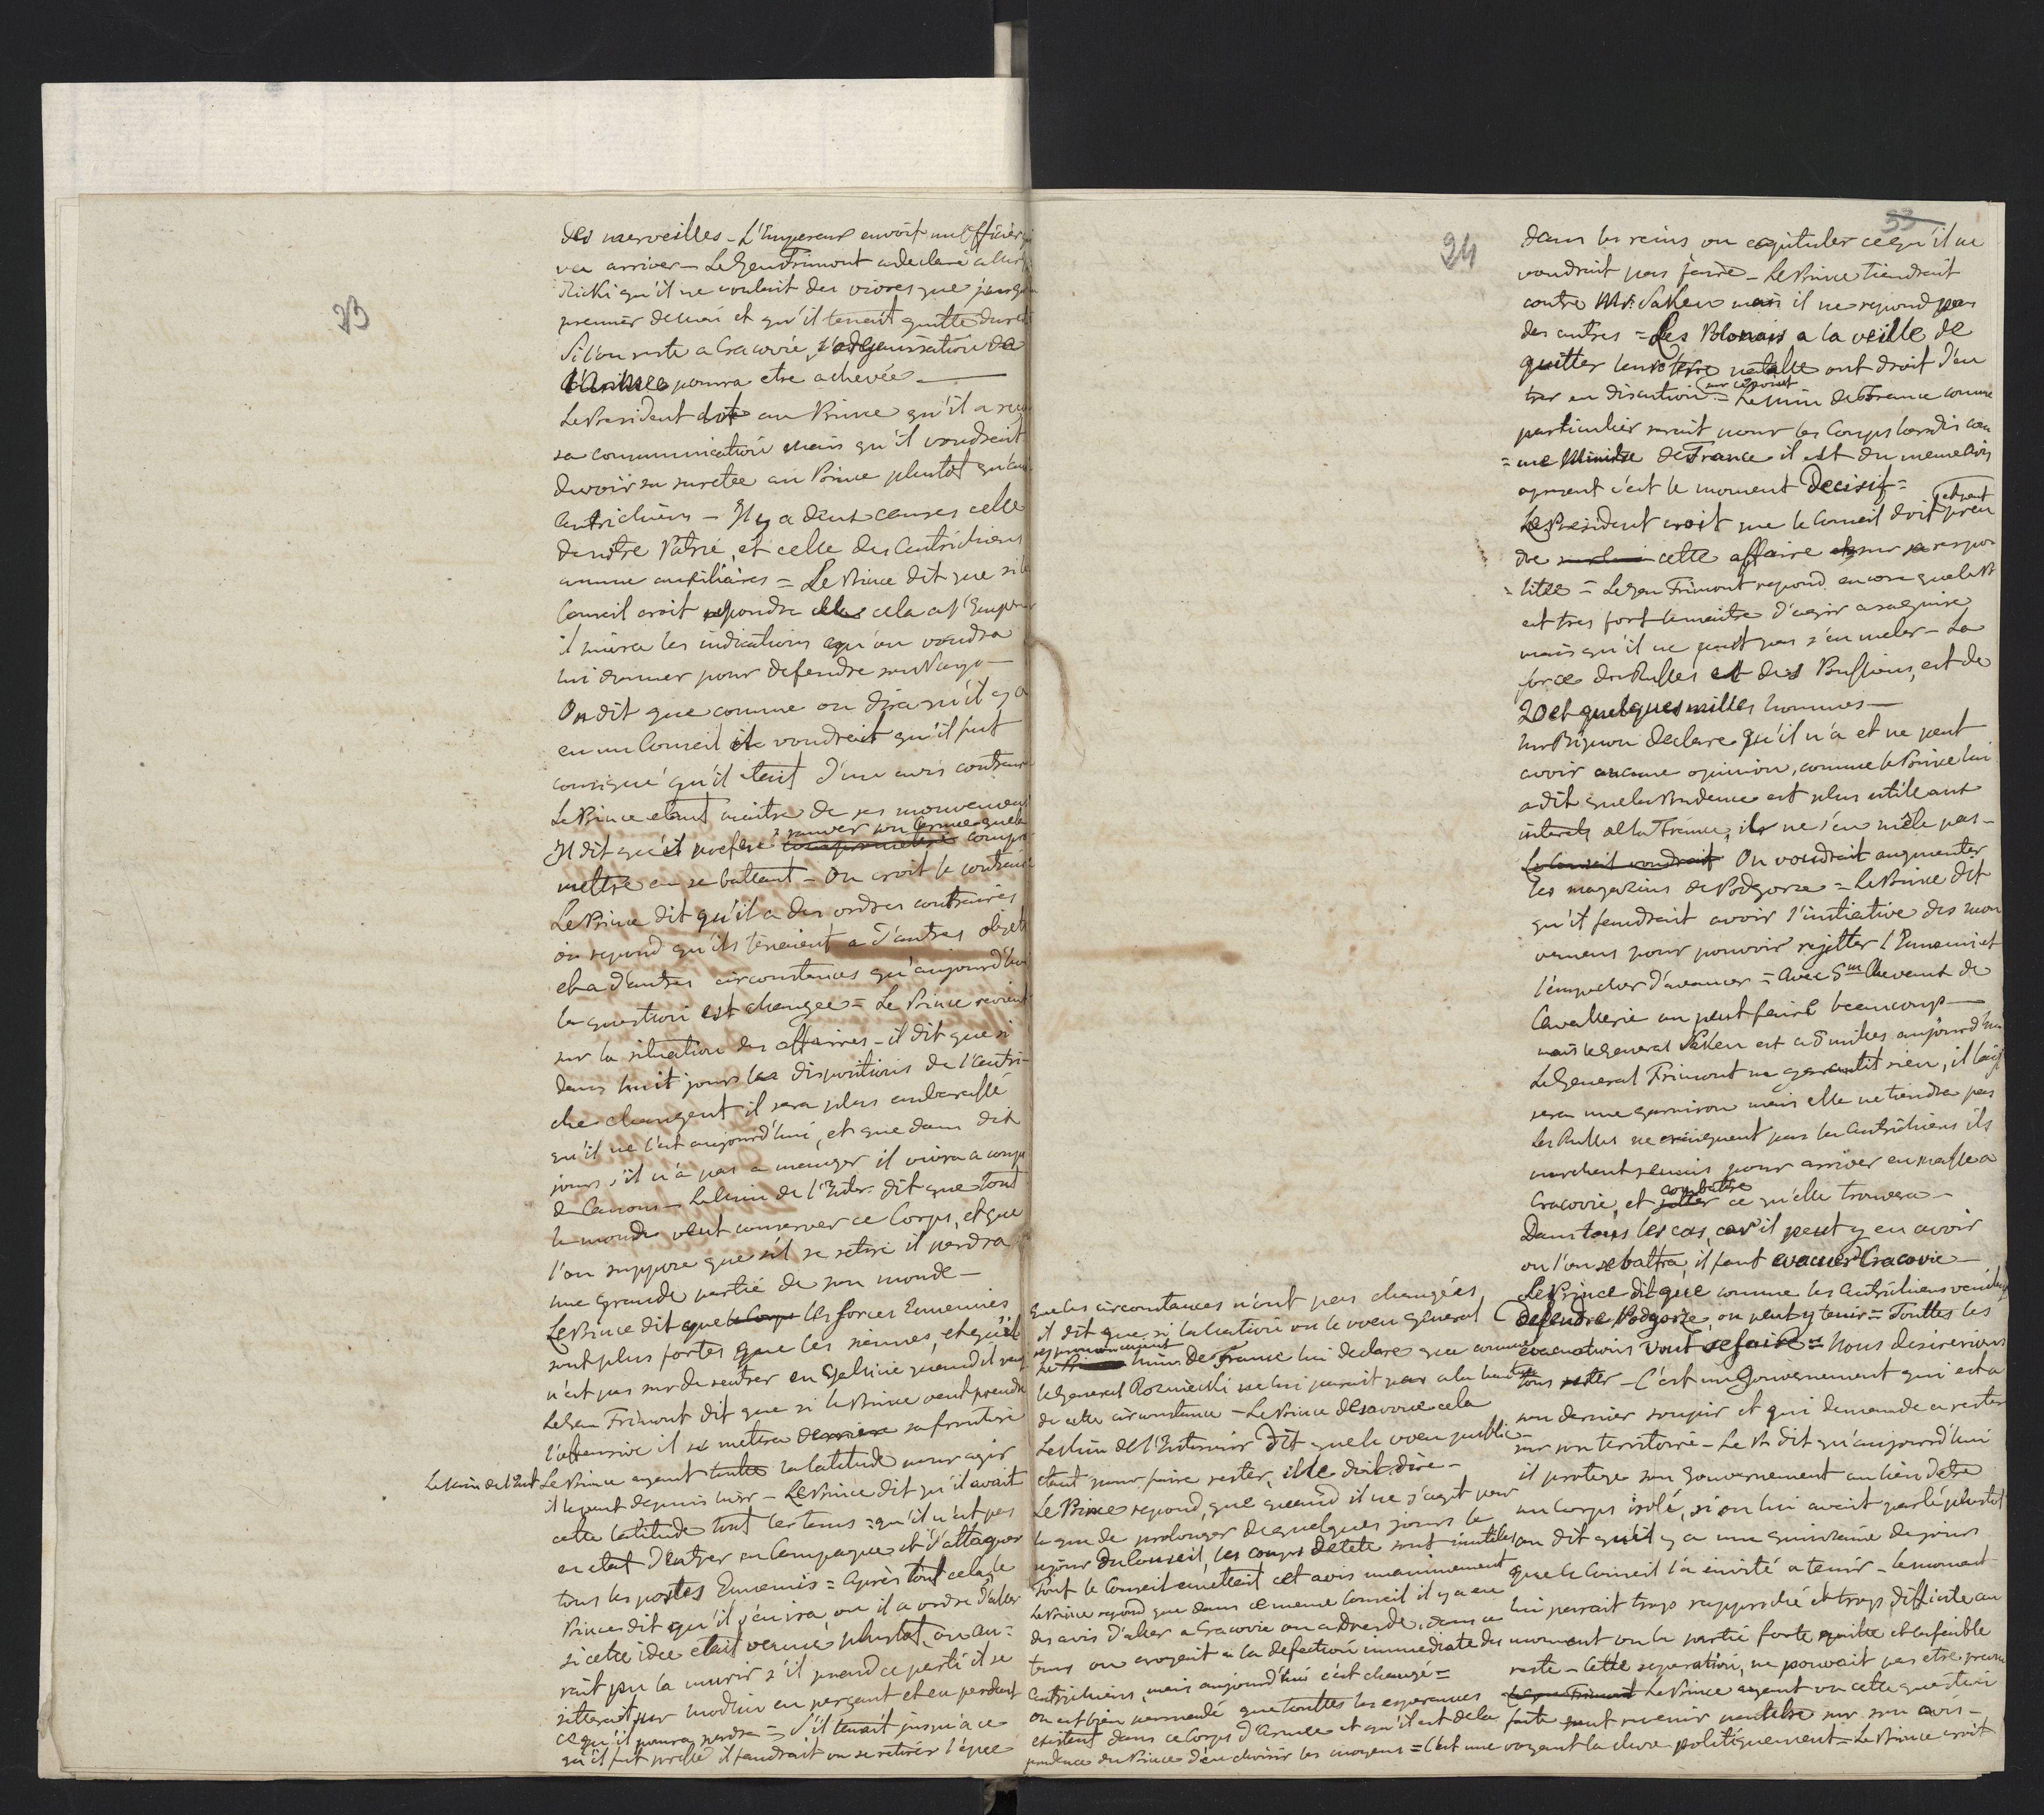 23
des merveilles – L'Empereur envoit un officier qui
va arriver – Le Gen Frimont a declaré a
Ricki qu'il ne voulait des vivres que jusqu'
premier de Mai et qu'il tenait quitte du reste
Si l'on reste a Cracovie, l'organisation de
l'Armée pourra etre achevée —
Le President dit au Prince qu'il a reçu
sa communication mais qu'il voudrait
devoir sa sureté au Prince plutot qu'aux
Autrichiens – Il y a deux causes celle
de notre Patrie, et celle des Autrichiens
comme auxiliaires = Le Prince dit que si le
Conseil croit repondre de cela a l'Empereur
il suivra les indications qu'on voudra
lui donner pour defendre son Pays –
On dit que comme on dira qu'il y a
eu un Conseil il voudrait qu'il fut
consigné qu'il etait d'un avis contraire
Le Prince etant maitre de ses mouvemens
Il dit qu'il prefere sauver son Armée que la
compromettre compro
mettre en se battant – On croit le contraire
Le Prince dit qu'il a des ordres contraires
on repond qu'ils tenaient a d'autres objets
et a d'autres circonstances qu'aujourd'hui
la question est changée = Le Prince revient
sur la situation des affaires – il dit que si
dans huit jours les dispositions de l'Autri-
che changent il sera plus embarassé
qu'il ne l'est aujourd'hui, et que dans dix
jours s'il n'a pas a manger il vivra a coups
de Canons – Le Min de l'Inter. dit que tout
le monde veut conserver ce Corps, et que
l'on suppose que s'il se retire il perdra
une grande partie de son monde –
Le Prince dit que le Corps les forces Ennemies
sont plus fortes que les siennes, et qu'il
n'est pas sur de rentrer en Galicie quand il
Le Gen Frimont dit que si le Prince veut prendre
l'offensive il se mettra derriere sa frontiere
Le Min de l'Int Le Prince ayant toute la latitude pour agir
il le peut depuis hier – Le Prince dit qu'il avait
cette latitude tout le tems = qu'il n'est pas
en etat d'entrer en Campagne et d'attaquer
tous les postes Ennemis = Après tout cela le
Prince dit qu'il s'en ira, ou il a ordre d'aller
si cette idee etait venue plustot, on au =
rait pu la murir s'il prend ce parti il se
jetterait sur Modlin en perçant et en perdant
ce qu'il pourra perdre = S'il tenait jusqu'a ce
qu'il fut pressé il faudrait ou se retirer l'épée
24
que les circonstances n'ont pas changées
il dit que si la nation ou le voeu general
se prononcaient
Le Prince Min de France lui declare que comme
le General Rozniecki ne lui parait pas a la hauteur
de cette circonstance – Le Prince desavoue cela
Le Min de l'Interieur dit que le voeu public
etant pour faire rester, il le doit dire –
Le Prince repond, que quand il ne s'agit pour
lui que de prolonger de quelques jours le
sejour du Conseil, les coups de tete sont inutiles
Tout le Conseil emettait cet avis unanimement
Le Prince repond que dans ce meme Conseil il y a eu
des avis d'aller a Cracovie ou a Dresde, dans ce
tems on croyait a la defection immediate des
Autrichiens, mais aujourd'hui c'est changé =
On est bien persuadé que toutes les esperances
existent dans ce Corps d'Armée et qu'il est de la
prudence du Prince d'en choisir les moyens = C'est une
33
dans les reins ou capituler ce qu'il ne
voudrait pas faire – Le Prince tiendrait
contre Mr. Saken mais il ne repond pas
des autres = Les Polonais a la veille de
quitter leur terre natalle ont droit d'en
trer en discution sur ce point = Le Min de France comme
particulier serait pour les Coups hardis com
= me Ministre de France il est du meme avis
apresent c'est le moment Decisif =
Le President croit que le Conseil doit et peut pren
dre sur lui cette affaire et sur sa respon
= bilité = Le Gen Frimont repond encore que le Pr
est tres fort le maitre d'agir a sa guise
mais qu'il ne peut pas s'en meler – La
force des Russes et des Prussiens, est de
20 et quelques milles hommes —
Mr Bignon declare qu'il n'a et ne peut
avoir aucune opinion, comme le Prince lui
a dit que la Prudence est plus utile aux
interets de la France, il ne s'en mêle pas –
Le Conseil voudrait On voudrait augmenter
les magazins de Podgorze = Le Prince dit
qu'il faudrait avoir l'initiative des mou
vemens pour pouvoir rejetter l'Ennemi et
l'empecher d'avancer = Avec 5m Chevaux de
Cavallerie on peut faire beaucoup —
mais le General Saken est a 5 milles aujourd'hui
Le General Frimont ne garantit rien, il lais
sera une garnison mais elle ne tiendra pas
Les Russes ne craignent pas les Autrichiens ils
marchent pour arriver en masse a
Cracovie, et combattre ce qu'elle trouvera –
Dans tous les cas, car il peut y en avoir
ou l'on se battra, il faut evacuer Cracovie –
Le Prince dit que comme les Autrichiens veulent
defendre Podgorze, on peut y tenir = Touttes les
evacuations vont se faire = Nous desirerions
tous rester – C'est un Gouvernement qui est a
son dernier soupir et qui demande a rester
sur son territoire – Le Pr dit qu'aujourd'hui
il protege son Gouvernement au lieu d'etre
un Corps isolé, si on lui avait parlé plustot
on dit qu'il y a une quinzaine de jours
que le Conseil l'a invité a tenir – le moment
lui parait trop rapproché et trop difficile au
moment ou la partie forte quitte et la faible
reste – Cette separation, ne pouvait pas etre prevue
Le Gen Frimont Le Prince ayant vu cette question
faite peut revenir peutetre sur son avis –
voyant la chose politiquement = Le Prince croit